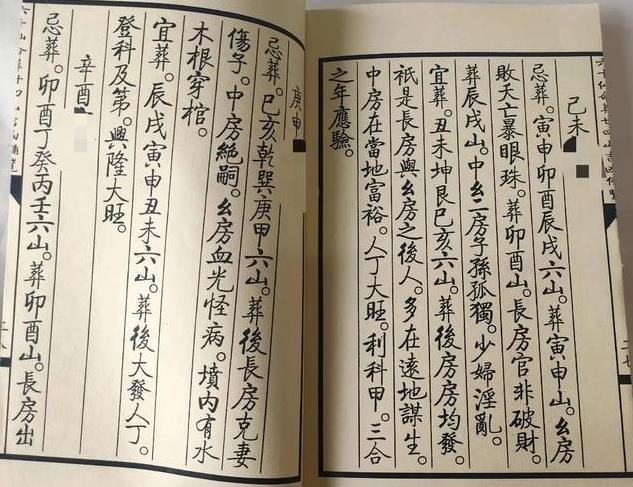 己未
忌葬。寅申卯酉辰戌六山。葬寅申山。幺房
敗天亡暴眼珠。葬卯酉山。長房官非破財。
葬辰戌山。中幺二房子孫孤獨。少婦淫亂。
宜葬。丑未坤艮巳亥六山。葬後房房均發。
祇是長房與幺房之後人。多在遠地謀生。
中房在當地富裕。人丁大旺。利科甲。三合
之年應驗。
庚申
忌葬。巳亥乾巽庚甲六山。葬後長房克妻
傷子。中房絕嗣。幺房血光怪病。墳內有水
木根穿棺。
宜葬。辰戌寅申丑未六山。葬後大發人丁。
登科及第。興隆大旺。
辛酉
忌葬。卯酉丁癸丙壬六山。葬卯酉山。長房出